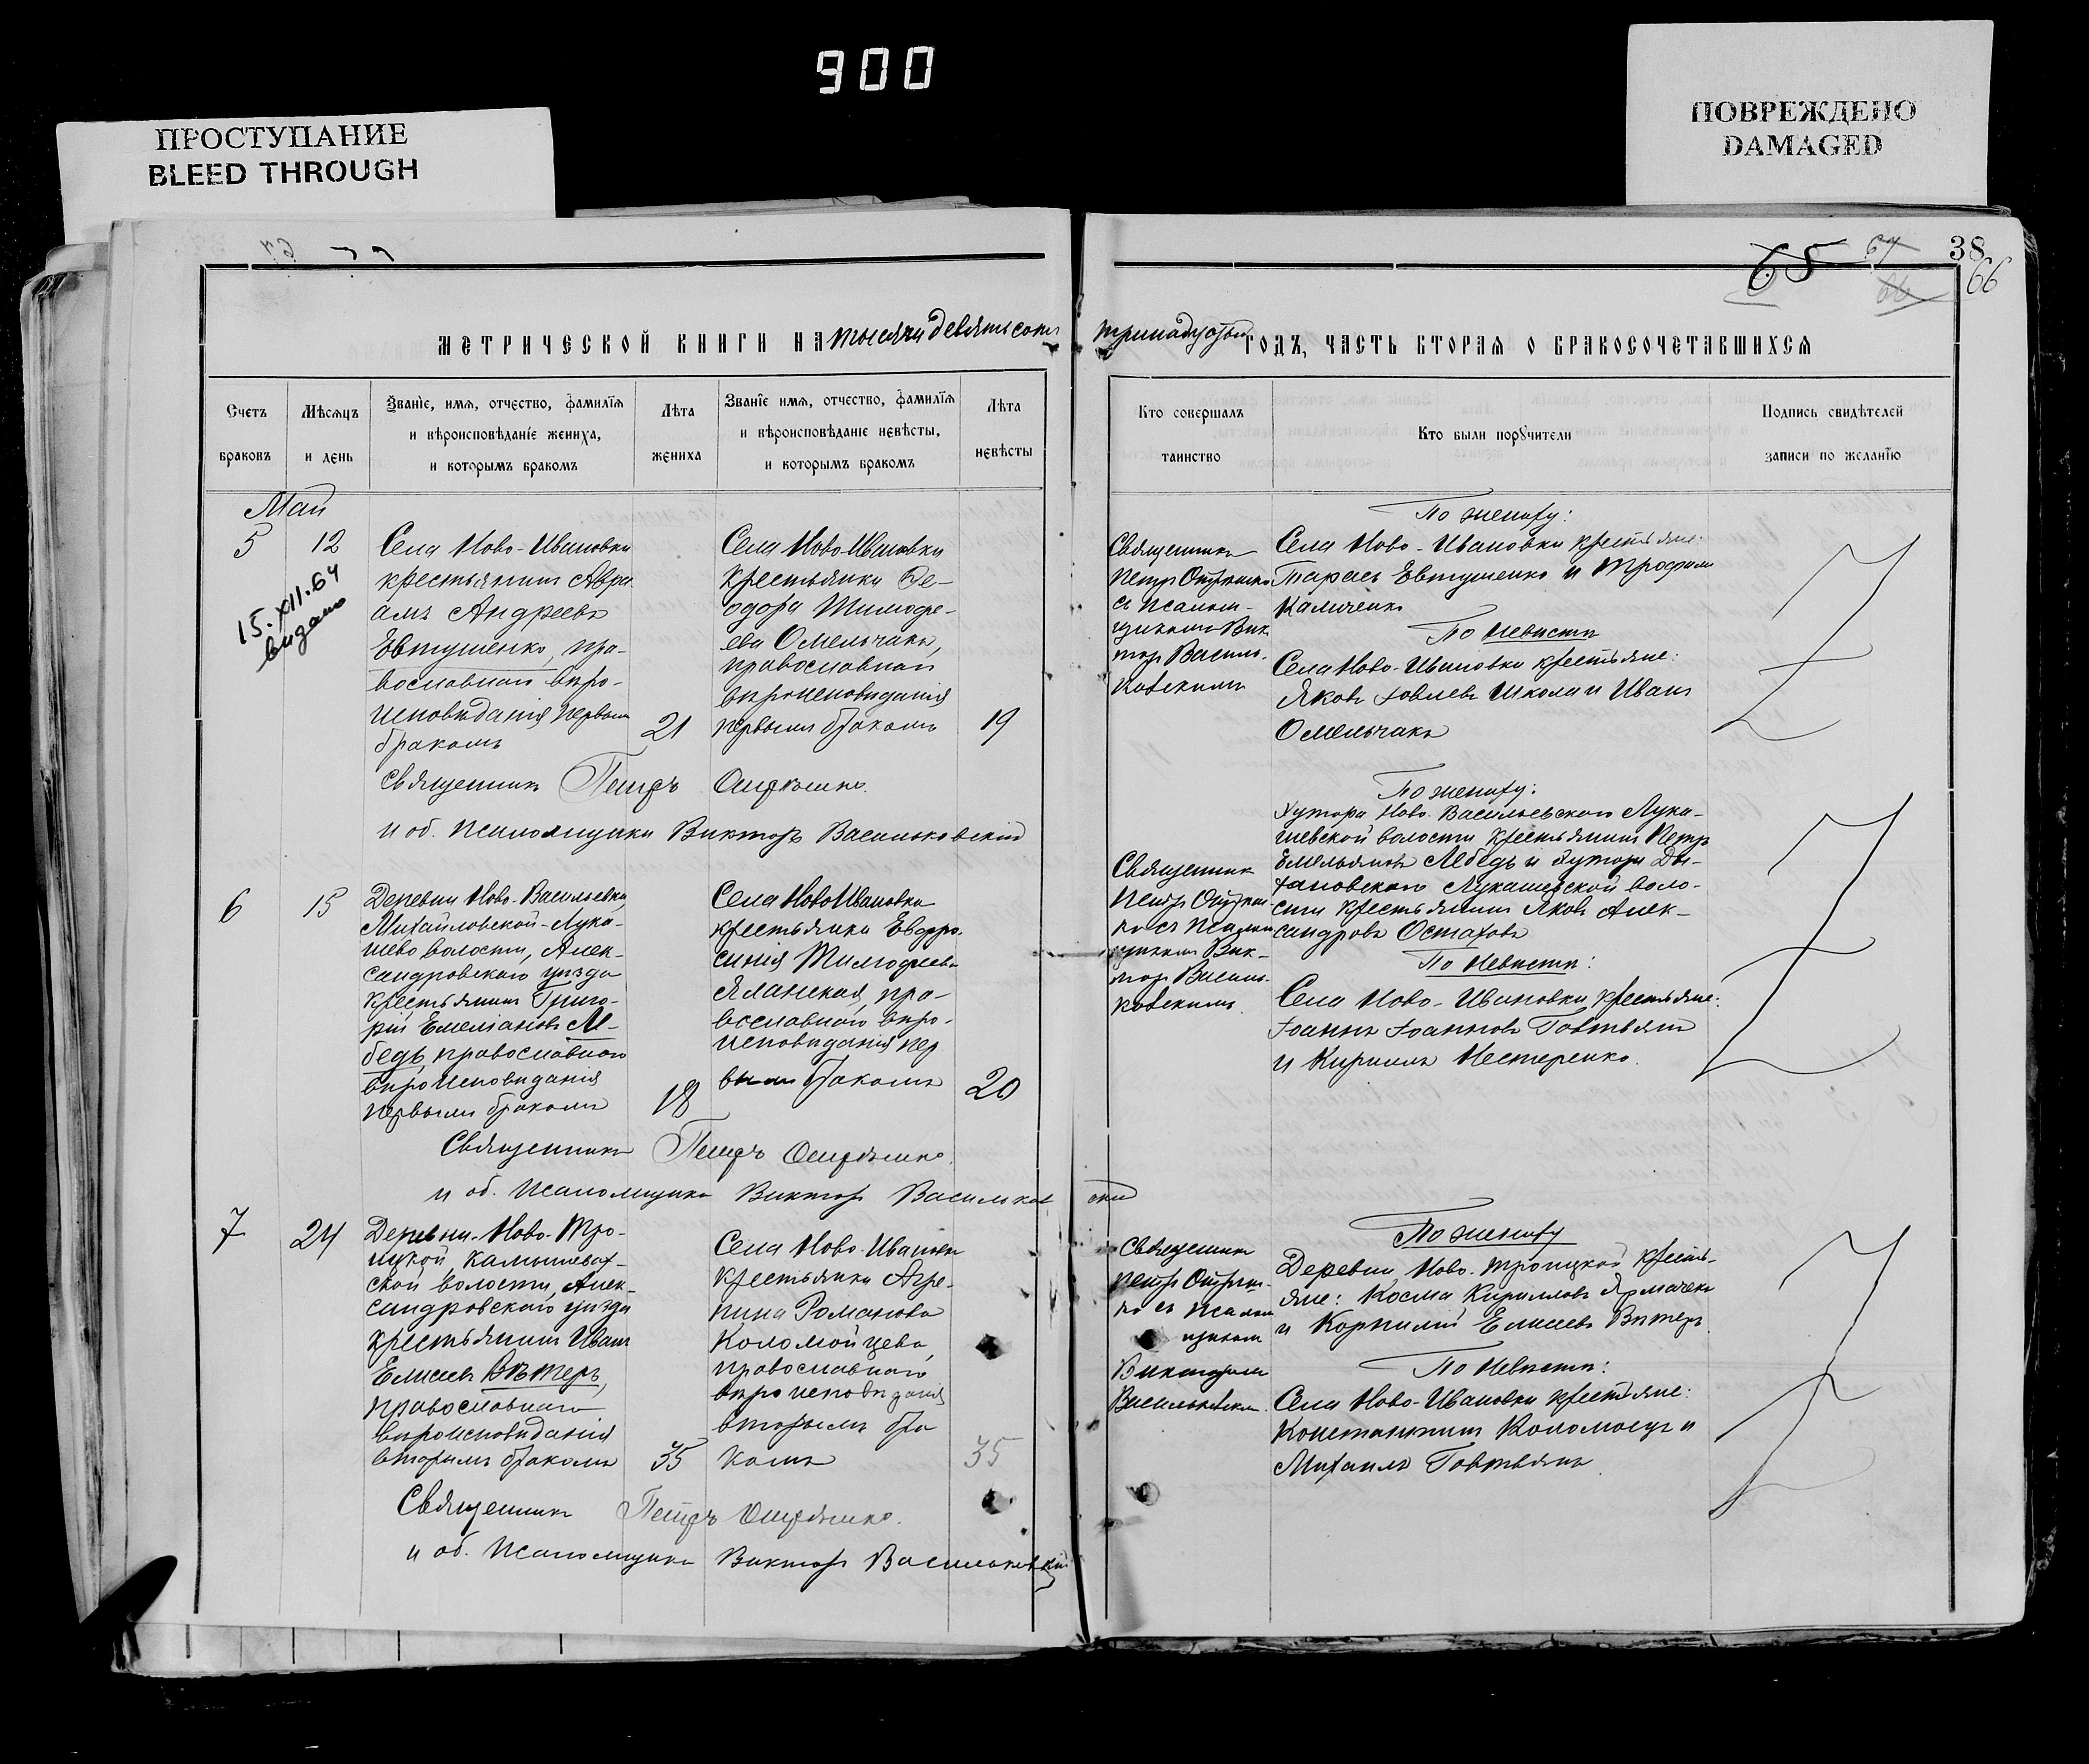 900
ПРОСТУПАНИЕ
BLEED THROUGH
ПОВРЕЖДЕНО
DAMAGED
65 67 38
66 66
МЕТРИЧЕСКОЙ КНИГИ НА тысяча девятьсотъ тринадцатый ГОДЪ, ЧАСТЬ ВТОРАЯ О БРАКОСОЧЕТАВШИХСЯ
Счетъ браковъ
Мѣсяцъ и день
Званіе, имя, отчество, фамилія
и вѣроисповѣданіе жениха,
и которымъ бракомъ
Лѣта жениха
Званіе имя, отчество, фамилія
и вѣроисповѣданіе невѣсты,
и которымъ бракомъ
Лѣта невѣсты
Кто совершалъ
таинство
Кто были поручители
Подпись свидѣтелей
записи по желанію
Май
5 12
15.XII.64
видано
Села Ново-Ивановки
крестьянинъ Авра
амъ Андреевъ
Евтушенко, пра-
вославнаго вѣро-
исповѣданія первым
бракомъ
21
Села Ново Ивановки
крестьянка Ѳе-
одора Тимофе-
ева Омельчакъ,
православнаго
вѣроисповѣданія
первымъ бракомъ
19
Священникъ
Петръ
съ псалом-
щикомъ Вик
тор Василь-
ковскимъ
По жениху:
Села Ново-Ивановки крестьяне:
Тарасъ Евтушенко и Трофимъ
По невѣстѣ
Села Ново-Ивановки крестьяне:
Яковъ Іовлевъ Школа и Иванъ
Омельчакъ
Священникъ Петръ
и об. псаломщика Викторъ Васильковскій
6 15
Деревни Ново-Васильевки,
Михайловской-Лука-
шево волости, Алек-
сандровскаго уѣзда
крестьянинъ Григо-
рій Емеліановъ Ле-
бедь, православнаго
вѣроисповѣданія
первымъ бракомъ
18
Села Ново Ивановки
крестьянка Евфро-
синія Тимофеева
Яланская, пра-
вославнаго вѣро-
исповѣданія пер
вымъ бракомъ
20
Священникъ
Петръ
ко съ псалом
щикомъ Вик-
тор Василь-
ковскимъ
По жениху:
Хутора Ново-Васильевского Лука-
шевской волости крестьянинъ Петръ
Емельяновъ Лебедь и хутора
Лукашевской воло-
сти крестьянинъ Яковъ Алек-
сандровъ Остаховъ
По невѣстѣ:
Села Ново-Ивановки крестьяне:
Іоаннъ Іоанновъ Говтвянъ
и Кириллъ Нестеренко.
Священникъ Петръ
и об. псаломщика Викторъ Васильковскій
7 24
Деревни Ново-Тро-
ицкой, Камышеват-
ской волости, Алек-
сандровскаго уѣзда
крестьянинъ Иванъ
Елисеевъ Вѣтеръ,
православнаго
вѣроисповѣданія
вторымъ бракомъ
35
Села Ново-Ивановки
крестьянка Агре-
пина Романова
Коломойцева,
православнаго
вѣроисповѣданія
вторымъ бра
комъ
35
Священникъ
Петръ
ко съ псалом
щикомъ
Викторомъ
Васильковским.
По жениху
Деревни Ново-Троицкой кресть-
яне: Косма Кирилловъ Ярмачекъ
и Корнилій Елисеевъ Вѣтеръ.
По невѣстѣ:
Села Ново-Ивановки крестьяне:
Константинъ Коломоецъ и
Михаилъ Говтвянъ
Священникъ Петръ
и об. псаломщика Викторъ Васильковскій